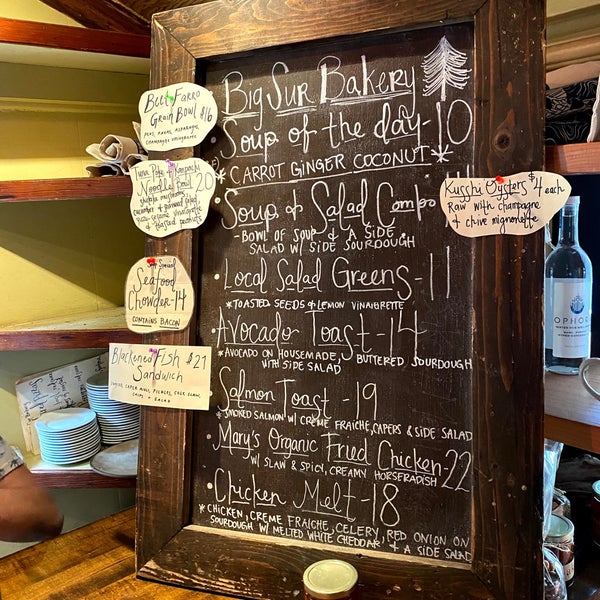 Big Sur Bakery
Soup of the day - 10
* CARROT GINGER COCONUT *
• Soup & Salad Combo
- BOWL OF SOUP & A SIDE
SALAD W/ SIDE SOURDOUGH
• Local Salad Greens - 11
* TOASTED SEEDS & LEMON VINAIGRETTE
• Avocado Toast - 14
* AVOCADO ON HOUSEMADE, BUTTERED SOURDOUGH
WITH SIDE SALAD
Salmon Toast - 19
* SMOKED SALMON W/ CREME FRAICHE, CAPERS & SIDE SALAD
• Mary's Organic Fried Chicken - 22
W/ SLAW & SPICY, CREAMY HORSERADISH
• Chicken Melt - 18
* CHICKEN, CREME FRAICHE, CELERY, RED ONION ON
SOURDOUGH W/ MELTED WHITE CHEDDAR, & A SIDE SALAD
Beet Farro
Grain Bowl $16
ASPARAGUS,
CHAMPAGNE VINAIGRETTE
Tuna Poke & Kanpachi
Noodle Bowl 20
shiitake mushrooms,
cucumber & pickled
vinaigrette
& toasted peanuts
Special
Seafood
Chowder - 14
CONTAINS BACON
Blackened Fish $21
Sandwich
CAPER AIOLI, PICKLES, SLAW,
CHIPS +
SALAD
Kusshi Oysters $4 each
Raw with champagne
& chive mignonette
OPHORA